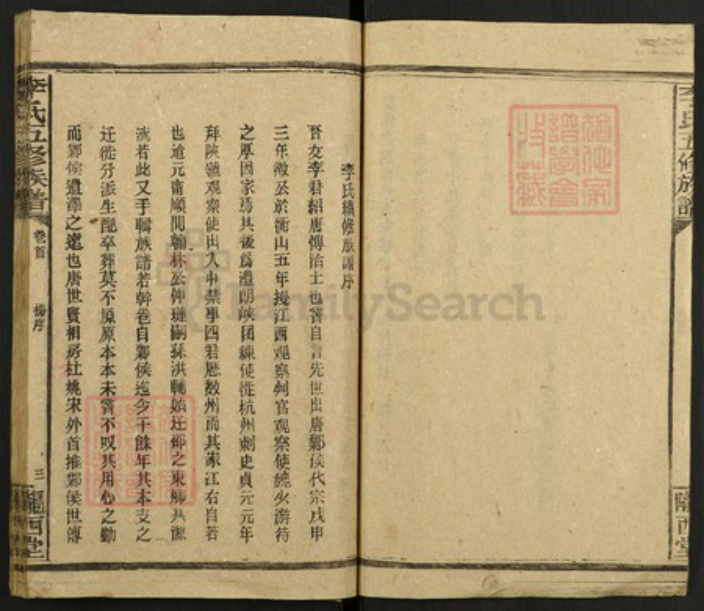 李氏五修族譜
隴西堂
猶他家譜學會收藏
李氏續修族譜序
吾友李君紹唐博洽士也嘗自言先世出唐鄴侯代宗戊申
三年徵至於衡山五年授江西觀察判官觀察使總少游符
之厚因家焉其後為澧朗峽團練使從杭州刺史貞元元年
拜陝虢觀察使出入中禁事四君歷數州而其家江右自若
也逾元甯順間翰林公仲璉嗣孫洪範始迁鄉之東鄉其源
流若此又手輯族譜若幹卷自鄴侯迄今千餘年其本支之
迁徙分派生配卒葬莫不原原本本未嘗不叹其用心之勤
而鄴侯遺澤之遠也唐世賢相房杜姚宋外首推鄴侯世傳
李氏五修族譜
卷首
楊序
三
隴西堂
FamilySearch